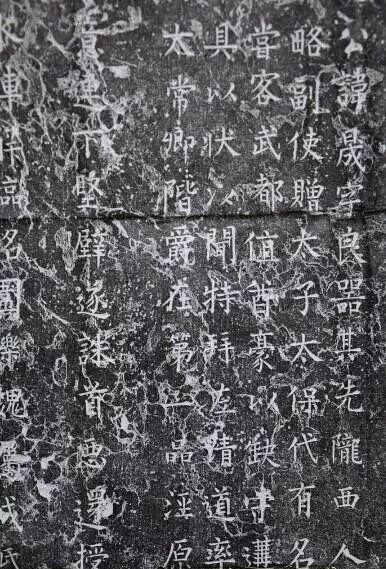 公諱晟字良器其先隴西人
略副使贈太子太保代有名
嘗客武都值酋豪以缺守遘
具以狀以聞特拜左清道率
太常卿階爵在第一品涇原
連下堅壁遂誅首惡還授
水車保臨名圍樂魄